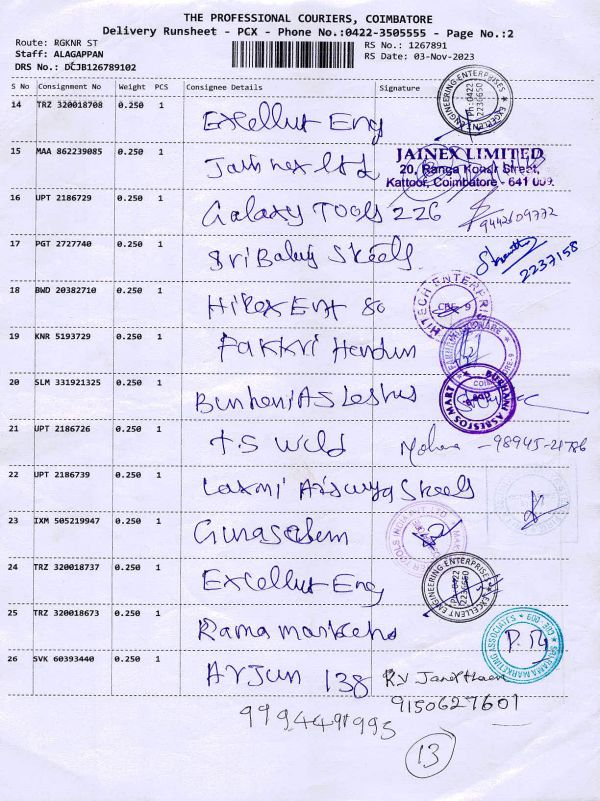 THE PROFESSIONAL COURIERS, COIMBATORE
Delivery Runsheet - PCX - Phone No.:0422-3505555 - Page No.:2
Route: RGKNR ST
RS No.: 1267891
Staff: ALAGAPPAN
RS Date: 03-Nov-2023
DRS No.: DCJB126789102
S No Consignment No Weight PCS Consignee Details Signature
14 TRZ 320018708 0.250 1 Excellut Eng
EXCELLENT ENGINEERING ENTERPRISES Ph:0422 2236650
15 MAA 862239085 0.250 1
JAINEX LIMITED
20, Ranga Konar Street,
Kattoor, Coimbatore - 641 009.
16 UPT 2186729 0.250 1 Galaxy Tools 226 9442609772
17 PGT 2727740 0.250 1 Sri Balaji Skeels 2237158
18 BWD 20382710 0.250 1 Ent 80
HITECH ENTERPRISE CBE-9
19 KNR 5193729 0.250 1
20 SLM 331921325 0.250 1
BURHANI ASBESTOS MART
21 UPT 2186726 0.250 1 TS Weld - 98945-21786
22 UPT 2186739 0.250 1 Laxmi Skeels
23 IXM 505219947 0.250 1
24 TRZ 320018737 0.250 1 Excellut Eng
EXCELLENT ENGINEERING ENTERPRISES 0422 2236650
25 TRZ 320018673 0.250 1 Rama Markets
SRI RAMA MARKETING ASSOCIATES CBE-009
26 SVK 60393440 0.250 1 Arjun 138 R.V
9150627601
13